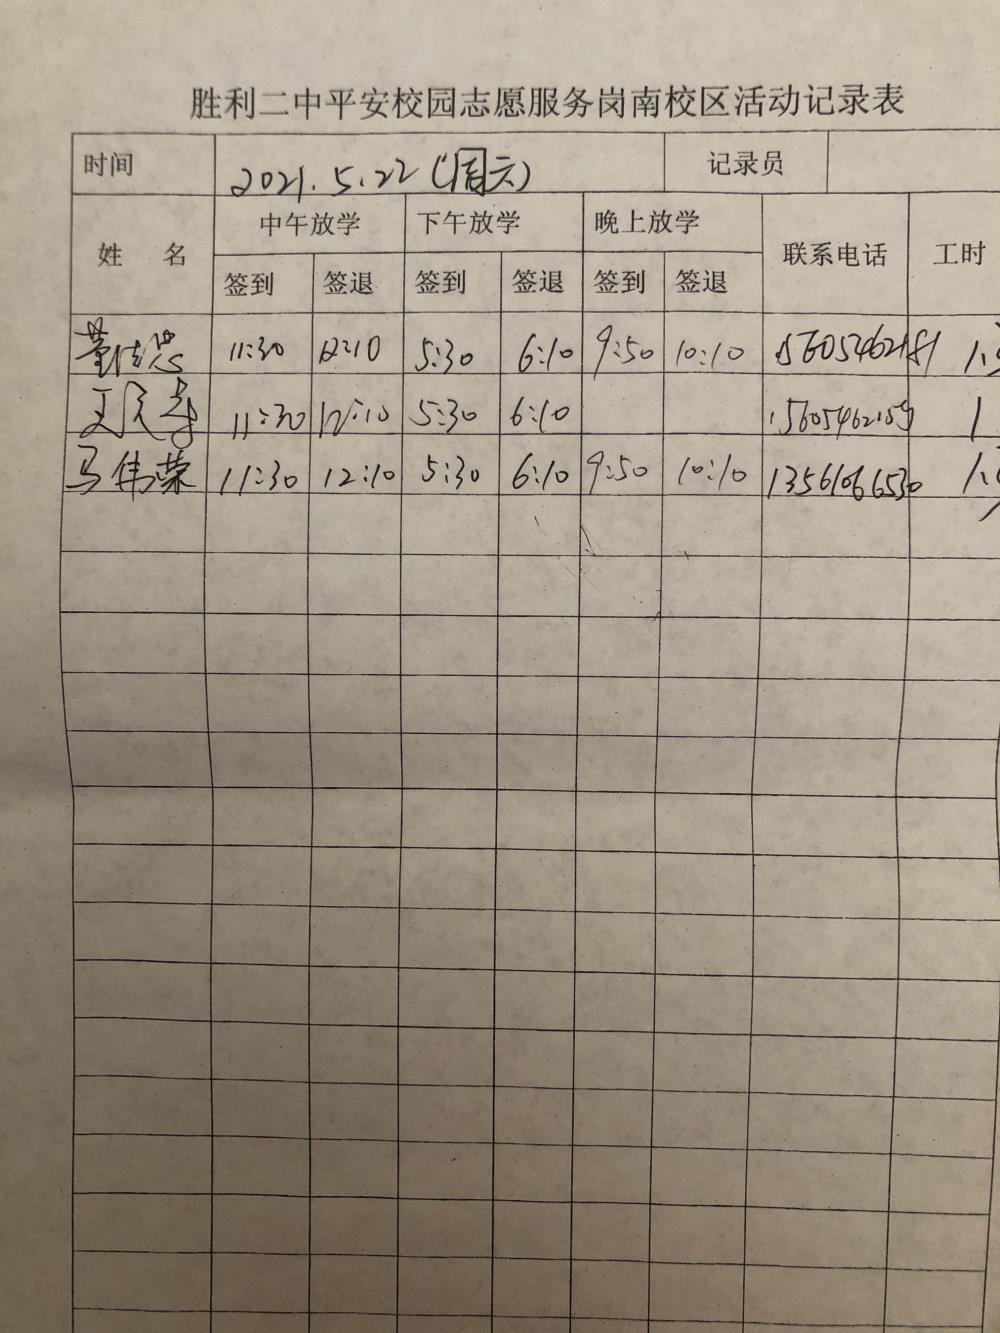 胜利二中平安校园志愿服务岗南校区活动记录表
时间 2021.5.22(周六) 记录员
姓 名 中午放学 下午放学 晚上放学 联系电话 工时
签到 签退 签到 签退 签到 签退
11:30 12:10 5:30 6:10 9:50 10:10 15605462181
11:30 12:10 5:30 6:10 1
马伟荣 11:30 12:10 5:30 6:10 9:50 10:10 13561066530